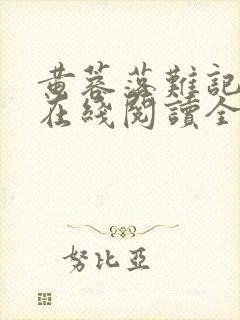 黄蓉落難記
在綫閱讀全
努比亞